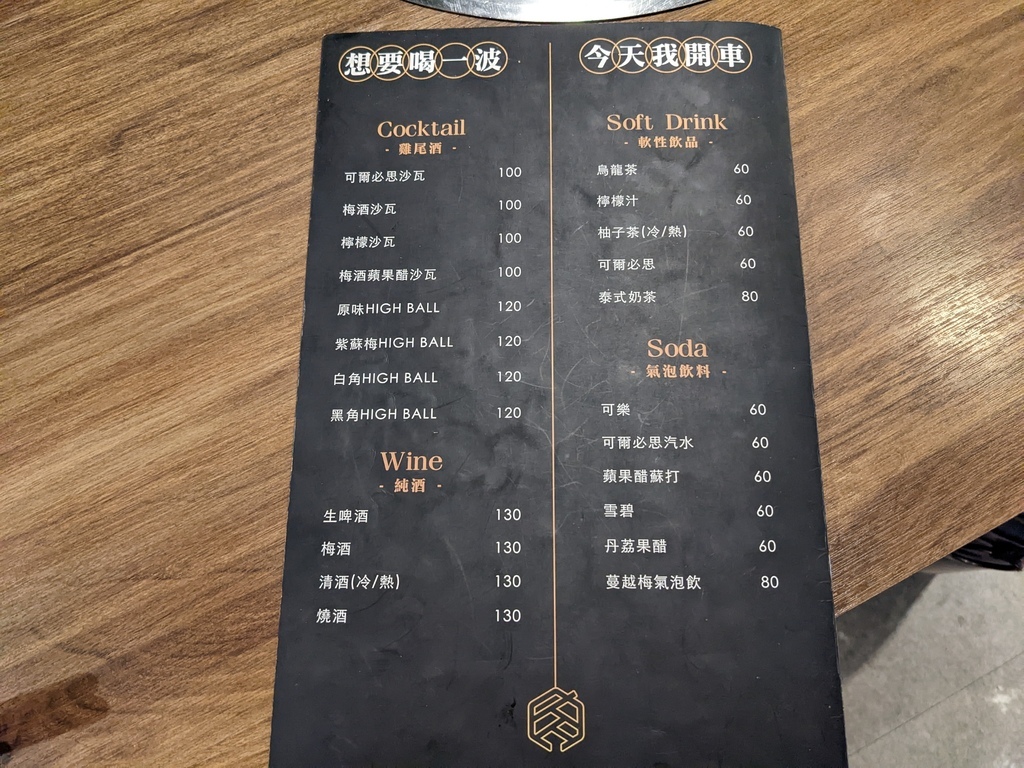 想要喝一波
Cocktail
- 雞尾酒 -
可爾必思沙瓦 100
梅酒沙瓦 100
檸檬沙瓦 100
梅酒蘋果醋沙瓦 100
原味HIGH BALL 120
紫蘇梅HIGH BALL 120
白角HIGH BALL 120
黑角HIGH BALL 120
Wine
- 純酒 -
生啤酒 130
梅酒 130
清酒(冷/熱) 130
燒酒 130
今天我開車
Soft Drink
- 軟性飲品 -
烏龍茶 60
檸檬汁 60
柚子茶(冷/熱) 60
可爾必思 60
泰式奶茶 80
Soda
- 氣泡飲料 -
可樂 60
可爾必思汽水 60
蘋果醋蘇打 60
雪碧 60
丹荔果醋 60
蔓越梅氣泡飲 80